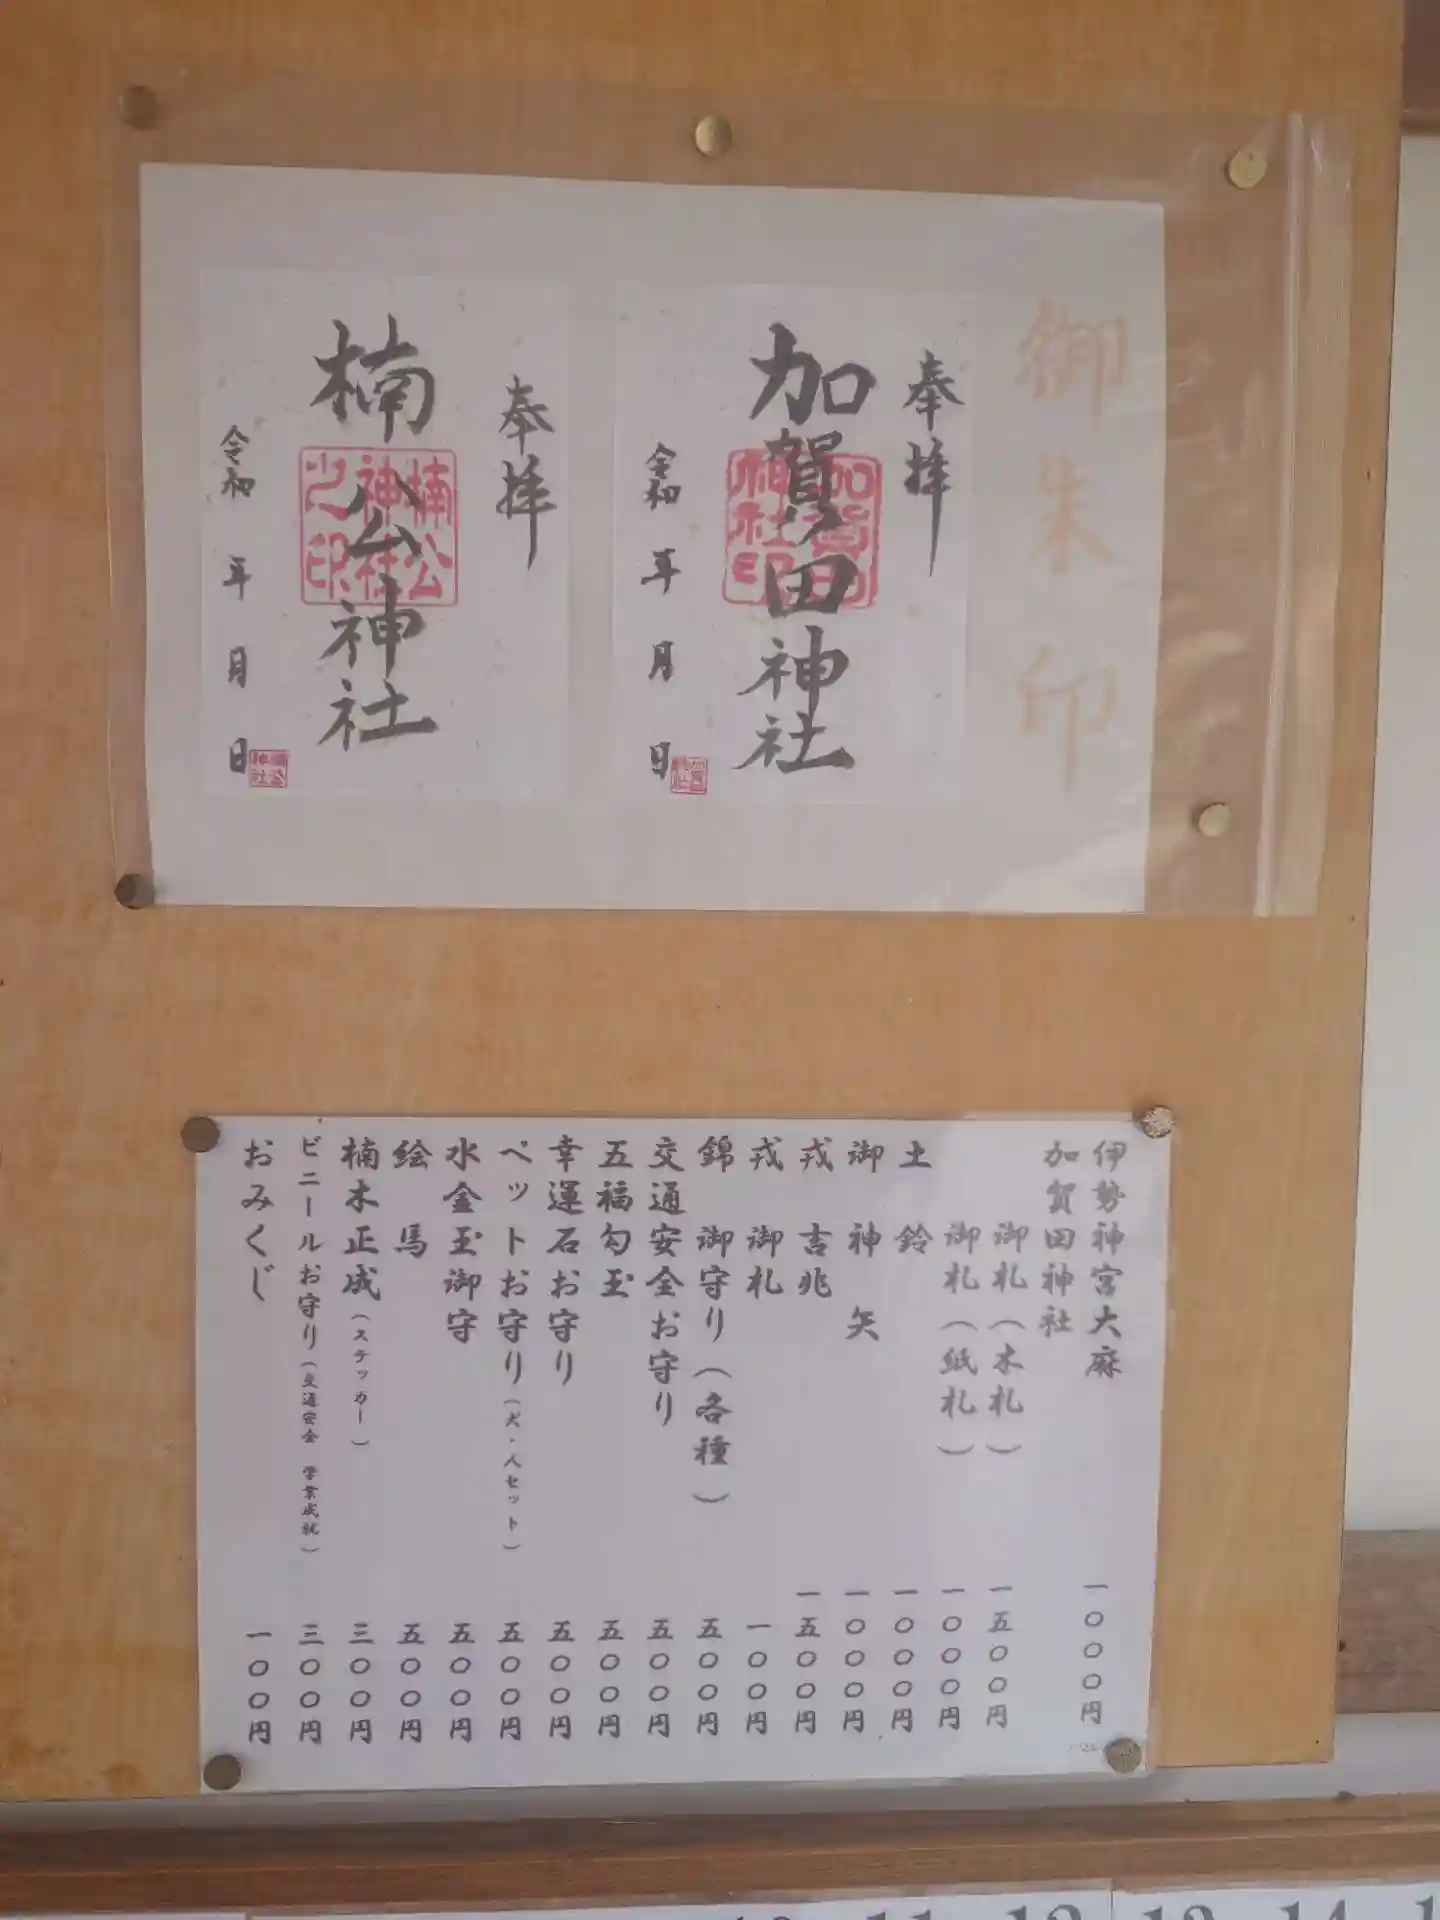 御朱印
奉拝
加賀田神社
令和 年 月 日
奉拝
楠公神社
楠公神社之印
令和 年 月 日
楠公神社
伊勢神宮大麻 一〇〇〇円
加賀田神社
御札（木札） 一五〇〇円
御札（紙札） 一〇〇〇円
土鈴 一〇〇〇円
御神矢 一〇〇〇円
戎吉兆 一五〇〇円
戎御札 一〇〇円
錦御守り（各種） 五〇〇円
交通安全お守り 五〇〇円
五福勾玉 五〇〇円
幸運石お守り 五〇〇円
ペットお守り（犬・人セット） 五〇〇円
水金玉御守 五〇〇円
絵馬 五〇〇円
楠木正成（ステッカー） 三〇〇円
ビニールお守り（交通安全 学業成就） 三〇〇円
おみくじ 一〇〇円
10 11 12 13 14